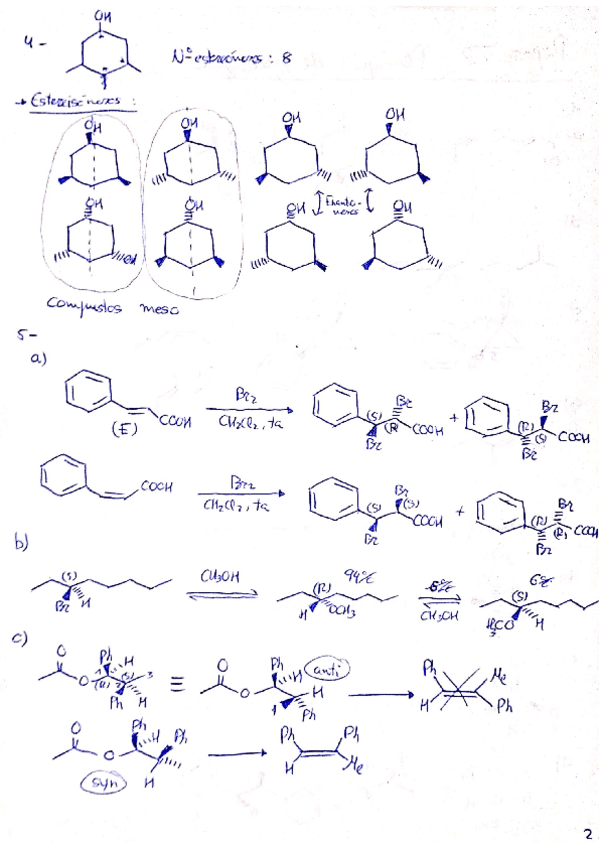 OH
4-
Nº estereoisómeros: 8
→ Estereoisómeros:
OH OH OH OH
OH OH Enantiómeros OH OH
OH
Compuestos meso
5-
a)
Br₂
CH₂Cl₂, ta
COOH
(E)
(S) Br (R) COOH
Br
+
(R) Br (S) COOH
Br
COOH
Br₂
CH₂Cl₂, ta
(S) Br (S) COOH
Br
+
(R) Br (R) COOH
Br
b)
(S)
Br H
CH₃OH
(R) 94%
H OCH₃
6%
CH₃OH
(S) 6%
H₃CO H
c)
O Ph H
O (R) (S) 3
Ph H
≡
O Ph anti
O H
Ph
Ph Me
H Ph
O Ph H Ph
O
syn H
Ph Ph
H Me
2